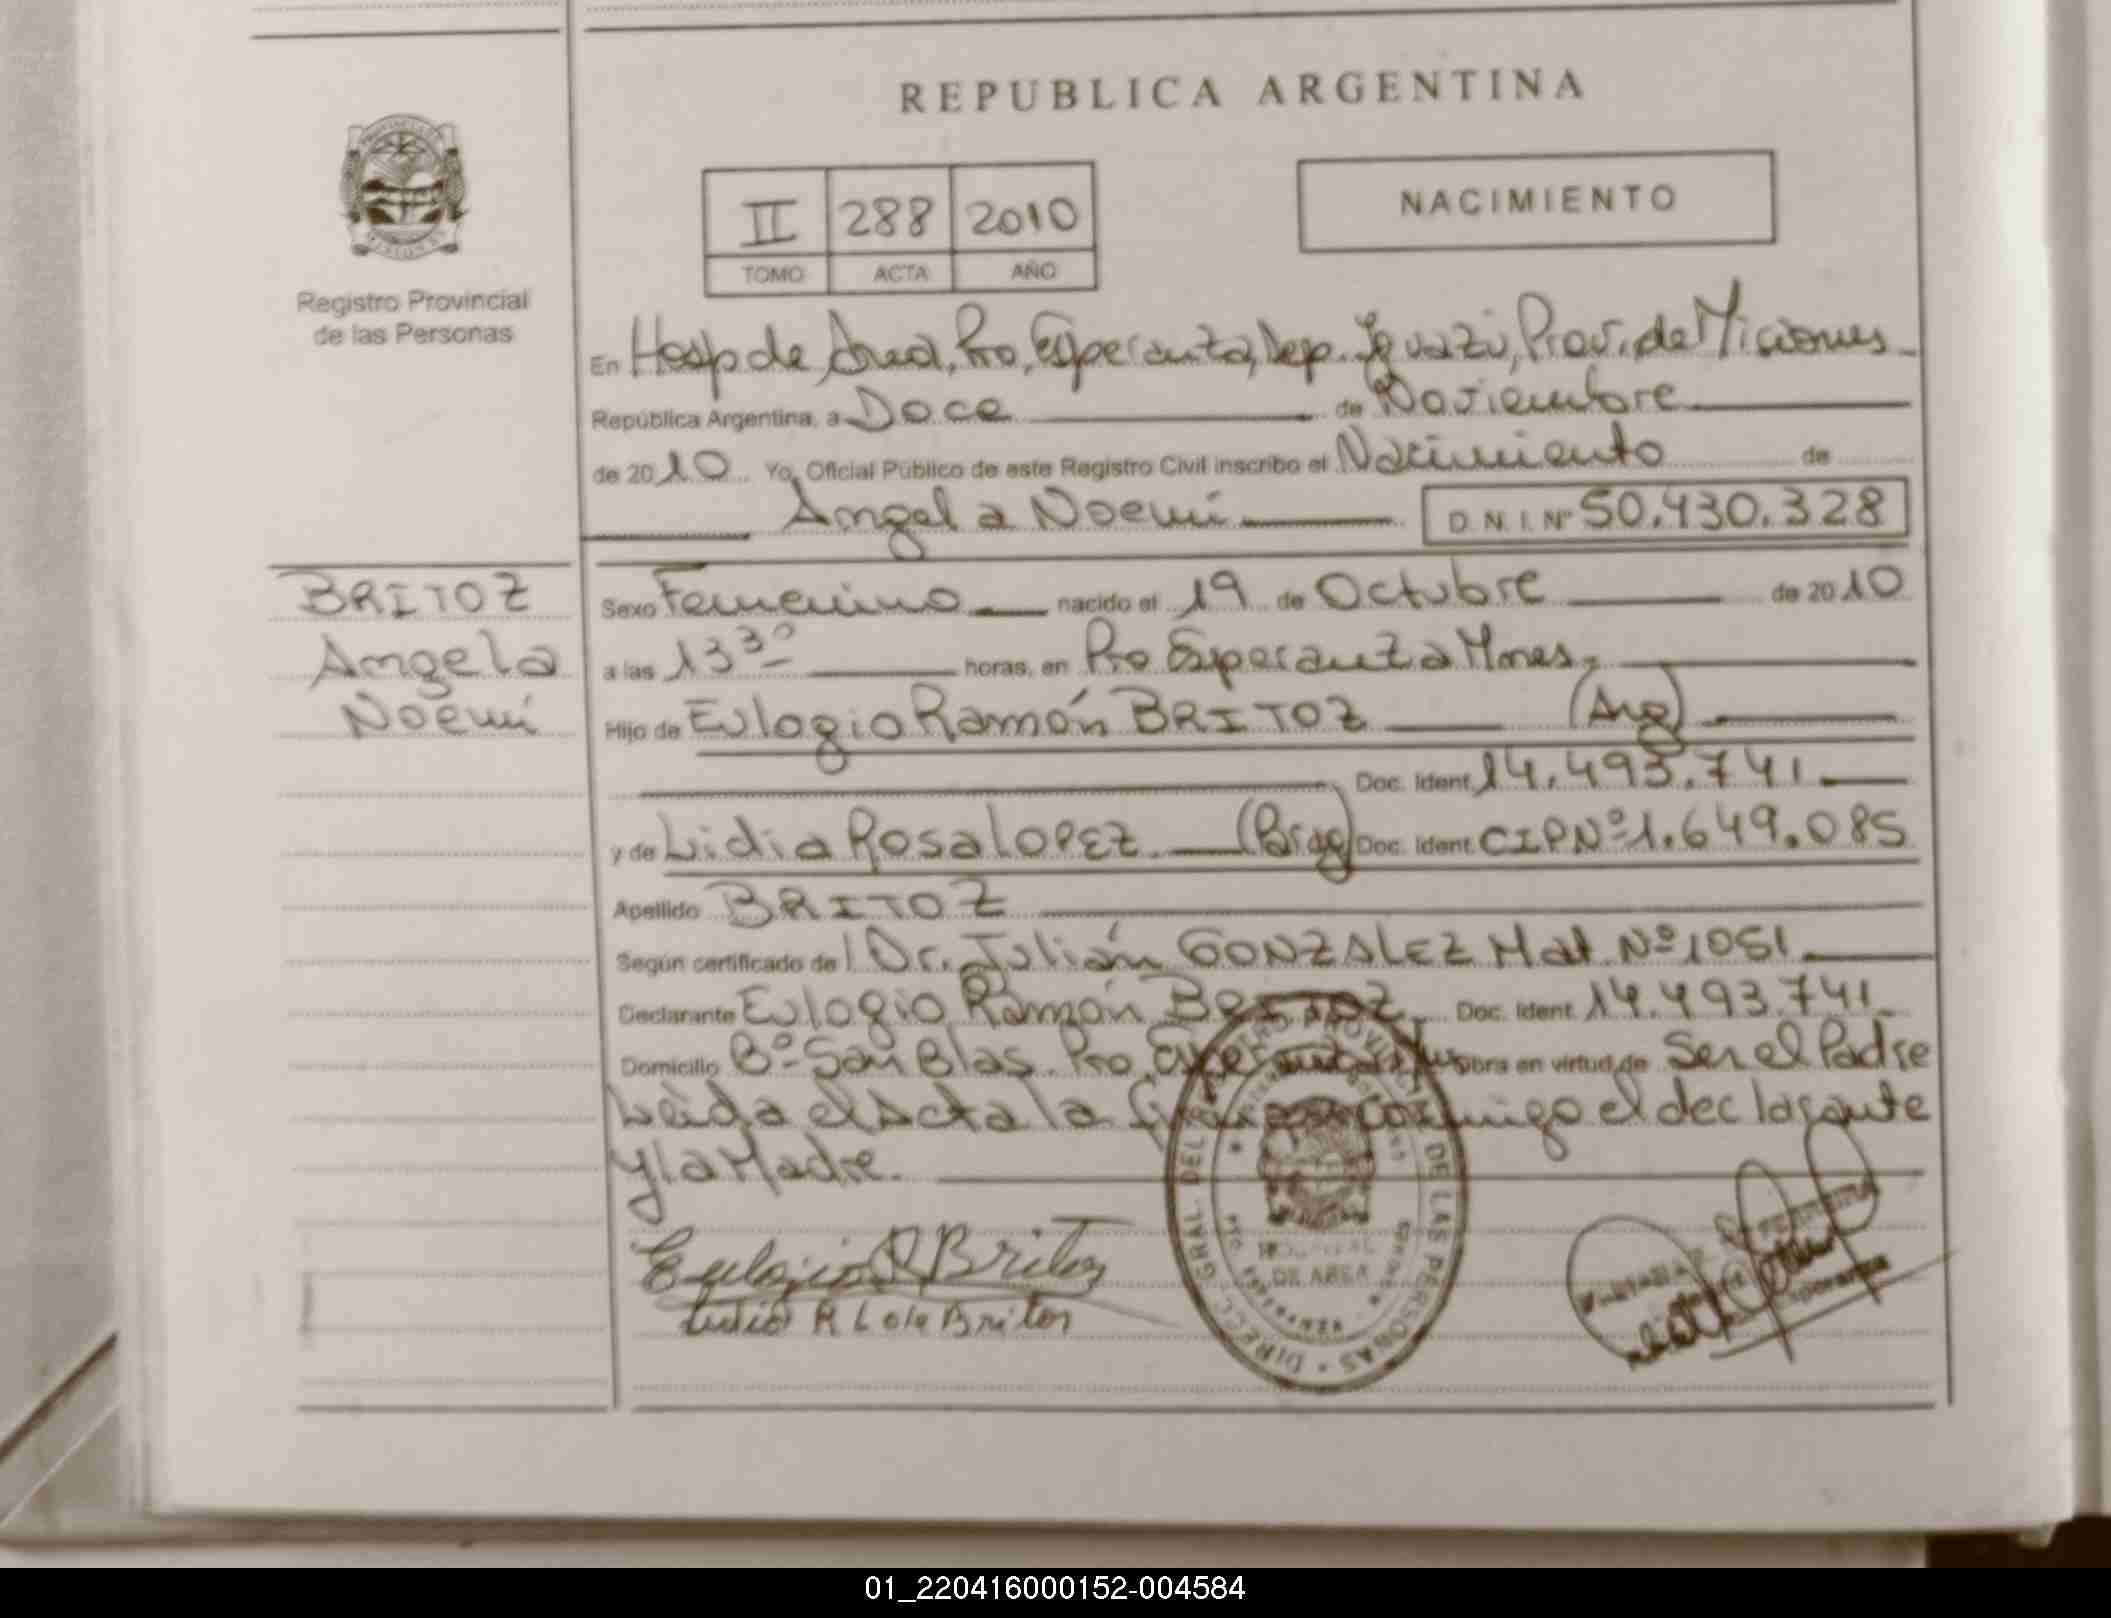 REPUBLICA ARGENTINA
II 288 2010
TOMO ACTA AÑO
NACIMIENTO
Registro Provincial
de las Personas
En Hosp de Area, Pto, Esperanza, Dep. Iguazú, Prov. de Misiones
República Argentina, a Doce de Noviembre
de 2010 Yo, Oficial Público de este Registro Civil inscribo el Nacimiento de
Angela Noemí D.N.I. Nº 50.430.328
BRITOZ
Angela
Noemí
Sexo Femenino nacido el 19 de Octubre de 2010
a las 13 3º horas, en Pto Esperanza Mnes.
Hijo de Eulogio Ramón BRITOZ (Arg)
Doc. Ident. 14.493.741
y de Lidia Rosa LOPEZ (Parag) Doc. Ident. CIPNº 1.649.085
Apellido BRITOZ
Según certificado de Dr. Julián GONZALEZ Mat. Nº 1051
Declarante Eulogio Ramón BRITOZ Doc. Ident. 14.493.741
Domicilio Bº San Blas. Pto. Esperanza Obra en virtud de Ser el Padre
Leida el Acta la conmigo el declarante
y la Madre.
Eulogio R Britoz
DIRECC. GRAL. DEL REGISTRO PROVINCIAL DE LAS PERSONAS
DE AREA
01_220416000152-004584